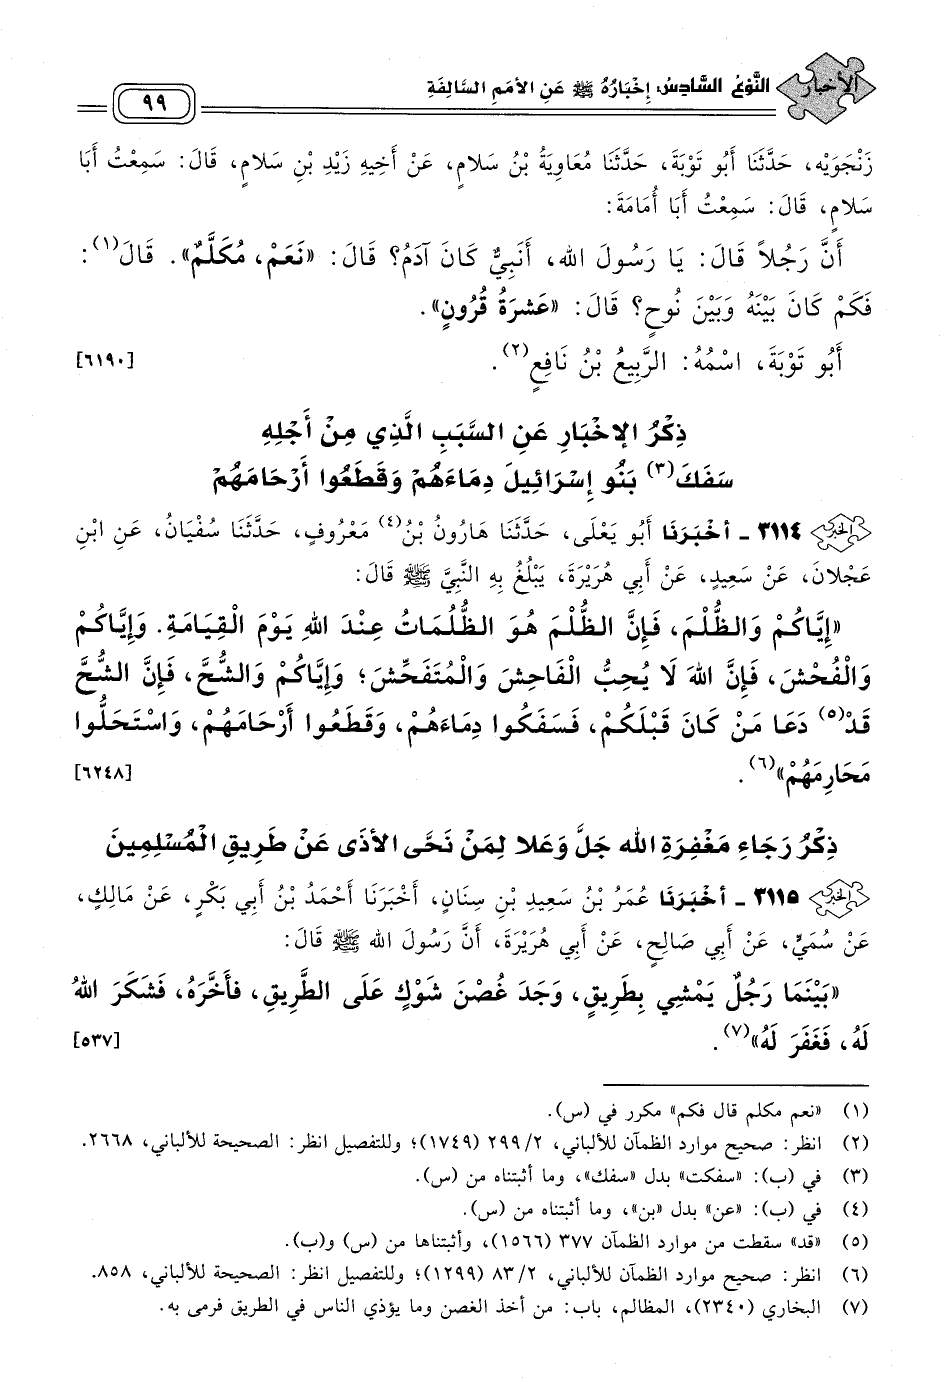 الأخبار
النَّوْعُ السَّادِسُ: إِخْبَارُهُ ﷺ عَنِ الأُمَمِ السَّالِفَةِ
٩٩
زَنْجَوَيْه، حَدَّثَنَا أَبُو تَوْبَةَ، حَدَّثَنَا مُعَاوِيَةُ بْنُ سَلامٍ، عَنْ أَخِيهِ زَيْدِ بْنِ سَلامٍ، قَالَ: سَمِعْتُ أَبَا
سَلامٍ، قَالَ: سَمِعْتُ أَبَا أُمَامَةَ:
أَنَّ رَجُلاً قَالَ: يَا رَسُولَ الله، أَنَبِيٌّ كَانَ آدَمُ؟ قَالَ: «نَعَمْ، مُكَلَّمٌ». قَالَ(١):
فَكَمْ كَانَ بَيْنَهُ وَبَيْنَ نُوحٍ؟ قَالَ: «عَشَرَةُ قُرُونٍ».
أَبُو تَوْبَةَ، اسْمُهُ: الرَّبِيعُ بْنُ نَافِعٍ(٢). [٦١٩٠]
ذِكْرُ الإخْبَارِ عَنِ السَّبَبِ الَّذِي مِنْ أَجْلِهِ
سَفَكَ(٣) بَنُو إِسْرَائِيلَ دِمَاءَهُمْ وَقَطَعُوا أَرْحَامَهُمْ
الخبر ٣١١٤ - أَخْبَرَنَا أَبُو يَعْلَى، حَدَّثَنَا هَارُونُ بْنُ(٤) مَعْرُوفٍ، حَدَّثَنَا سُفْيَانُ، عَنِ ابْنِ
عَجْلانَ، عَنْ سَعِيدٍ، عَنْ أَبِي هُرَيْرَةَ، يَبْلُغُ بِهِ النَّبِيَّ ﷺ قَالَ:
«إِيَّاكُمْ وَالظُّلْمَ، فَإِنَّ الظُّلْمَ هُوَ الظُّلُمَاتُ عِنْدَ اللهِ يَوْمَ الْقِيَامَةِ. وَإِيَّاكُمْ
وَالْفُحْشَ، فَإِنَّ اللهَ لَا يُحِبُّ الْفَاحِشَ وَالْمُتَفَحِّشَ؛ وَإِيَّاكُمْ وَالشُّحَّ، فَإِنَّ الشُّحَّ
قَدْ(٥) دَعَا مَنْ كَانَ قَبْلَكُمْ، فَسَفَكُوا دِمَاءَهُمْ، وَقَطَعُوا أَرْحَامَهُمْ، وَاسْتَحَلُّوا
مَحَارِمَهُمْ»(٦). [٦٢٤٨]
ذِكْرُ رَجَاءِ مَغْفِرَةِ الله جَلَّ وَعَلا لِمَنْ نَحَّى الأذَى عَنْ طَرِيقِ الْمُسْلِمِينَ
الخبر ٣١١٥ - أَخْبَرَنَا عُمَرُ بْنُ سَعِيدِ بْنِ سِنَانٍ، أَخْبَرَنَا أَحْمَدُ بْنُ أَبِي بَكْرٍ، عَنْ مَالِكٍ،
عَنْ سُمَيٍّ، عَنْ أَبِي صَالِحٍ، عَنْ أَبِي هُرَيْرَةَ، أَنَّ رَسُولَ الله ﷺ قَالَ:
«بَيْنَمَا رَجُلٌ يَمْشِي بِطَرِيقٍ، وَجَدَ غُصْنَ شَوْكٍ عَلَى الطَّرِيقِ، فأَخَّرَهُ، فَشَكَرَ اللهُ
لَهُ، فَغَفَرَ لَهُ»(٧). [٥٣٧]
(١) «نعم مكلم قال فكم» مكرر في (س).
(٢) انظر: صحيح موارد الظمآن للألباني، ٢/ ٢٩٩ (١٧٤٩)؛ وللتفصيل انظر: الصحيحة للألباني، ٢٦٦٨.
(٣) في (ب): «سفكت» بدل «سفك»، وما أثبتناه من (س).
(٤) في (ب): «عن» بدل «بن»، وما أثبتناه من (س).
(٥) «قد» سقطت من موارد الظمآن ٣٧٧ (١٥٦٦)، وأثبتناها من (س) و(ب).
(٦) انظر: صحيح موارد الظمآن للألباني، ٢/ ٨٣ (١٢٩٩)؛ وللتفصيل انظر: الصحيحة للألباني، ٨٥٨.
(٧) البخاري (٢٣٤٠)، المظالم، باب: من أخذ الغصن وما يؤذي الناس في الطريق فرمى به.